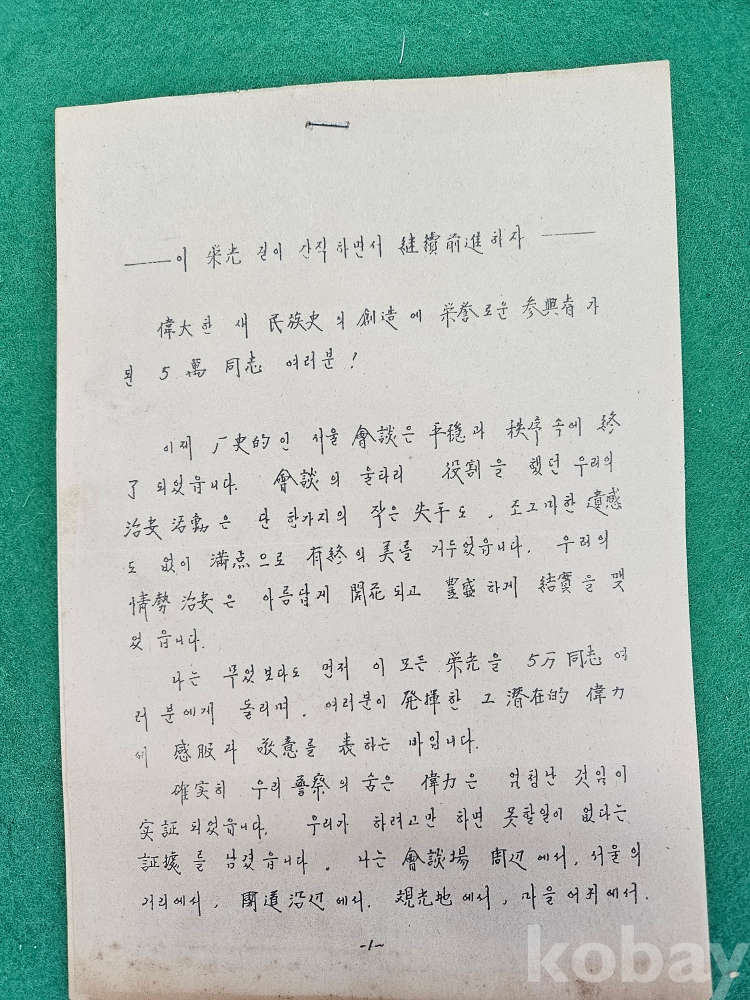 —— 이 栄光 길이 간직하면서 継續前進하자 ——
偉大한 새 民族史의 創造에 栄誉로운 参與者가
된 5萬同志 여러분!
이제 厂史的인 서울 會談은 平穏과 秩序속에 終
了되었읍니다. 會談의 울타리 役割을 했던 우리의
治安活動은 단 한가지의 작은 失手도, 조그마한 遺感
도 없이 満点으로 有終의 美를 거두었읍니다. 우리의
情勢治安은 아름답게 開花되고 豊盛하게 結實을 맺
었읍니다.
나는 무엇보다도 먼저 이 모든 栄光을 5万同志 여
러분에게 돌리며, 여러분이 発揮한 그 潜在的 偉力
에 感服과 敬意를 表하는 바입니다.
確実히 우리 警察의 숨은 偉力은 엄청난 것임이
实証되었읍니다. 우리가 하려고만 하면 못할일이 없다는
証據를 남겼읍니다. 나는 會談場 周辺에서, 서울의
거리에서, 國道沿辺에서, 観光地에서, 마을어귀에서,
-1-
kobay